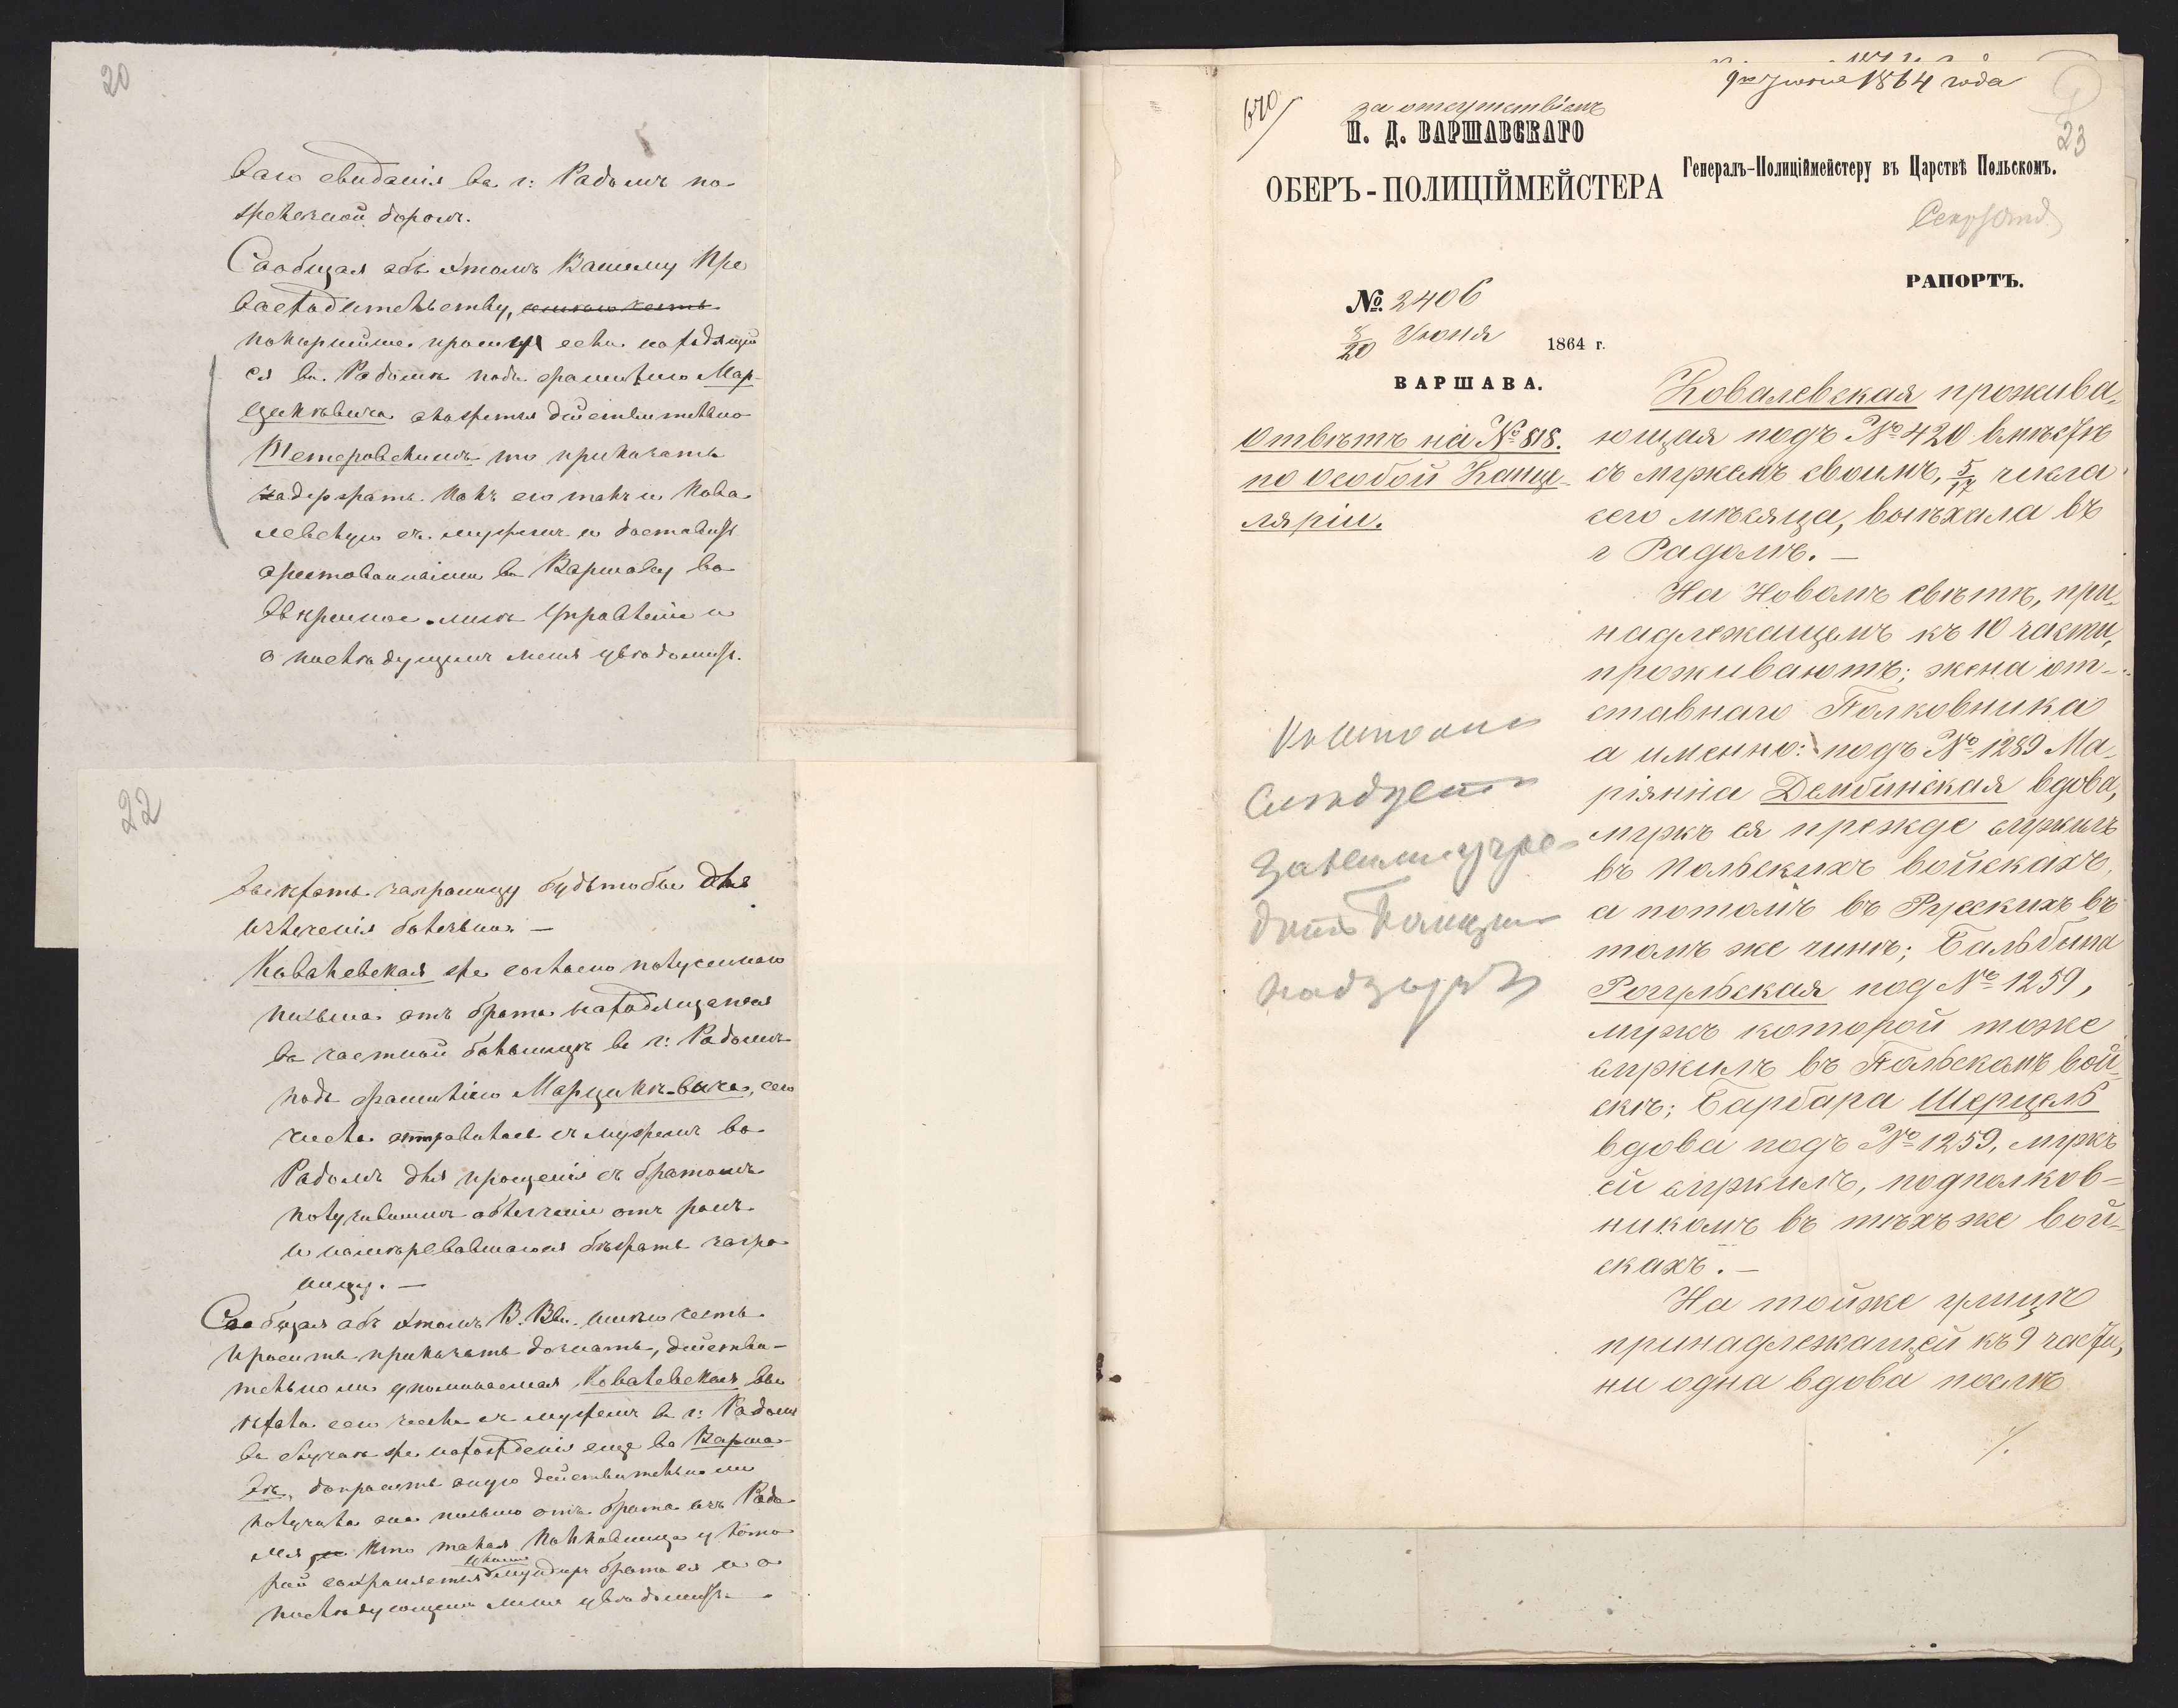 20
ваго свиданія въ г: Радомъ по
желѣзной дорогѣ.
Сообщая объ этомъ Вашему Пре
восходительству, имѣю честь
покорнѣйше прошу если находящій
ся въ Радомѣ подъ фамиліею Мар-
цинкевича окажется дѣйствительно
то приказать
задержать какъ его такъ и Кова
левскую съ мужемъ и доставить
арестованными въ Варшаву во
ввѣренное мнѣ Управленіе и
о послѣдующемъ меня увѣдомить.
22
выѣхать заграницу будьтобы для
излеченія болезни —
Ковалевская же согласно полученнаго
письма отъ брата находящагося
въ частной больницѣ въ г: Радомѣ
подъ фамиліею Марцинкевича, сего
числа отправилась съ мужемъ въ
Радомъ для прощенія съ братомъ
получившимъ облегченіе отъ ранъ
и намѣревавшагося бѣжать загра
ницу. —
Сообщая объ этомъ В. Вы. имѣю честь
просить приказать дознать, действи-
тельно ли упоминаемая Ковалевская вы
ѣхала сего числа съ мужемъ въ г: Радомъ
въ случаѣ же нахожденія еще въ Варша-
вѣ, допросить оную действительно ли
получила она письмо отъ брата изъ Радо
ма кто такая Полковница у кото
рой сохраняется мундиръ брата ея и о
послѣдующемъ меня увѣдомить. —
9го Іюня 1864 года
670/
за отсутствіемъ
И. Д. ВАРШАВСКАГО
ОБЕРЪ-ПОЛИЦІЙМЕЙСТЕРА
Генералъ-Полиціймейстеру въ Царствѣ Польскомъ.
23
РАПОРТЪ.
№ 2406
8/20 Июня 1864 г.
ВАРШАВА.
Отвѣтъ на № 818.
по Особой Канце-
ляріи.
Ковалевская прожива-
ющая подъ № 420 вмѣстѣ
съ мужемъ своимъ, 5/17 числа
сего мѣсяца, выѣхала въ
г Радомъ. —
На Новомъ свѣтѣ, при-
надлежащемъ къ 10 части,
проживаютъ; жена от-
ставнаго Полковника
а именно: подъ № 1289 Ма-
ріянна Дембинская вдова,
мужъ ея прежде служилъ
въ Польскихъ войскахъ,
а потомъ въ Русскихъ въ
томъ же чинѣ; Бальбина
Рогульская под № 1259,
мужъ которой тоже
служилъ въ Польскомъ вой-
скѣ; Барбара Шерцель
вдова подъ № 1259, мужъ
ей служилъ, подполков-
никомъ въ тѣхъ же вой-
скахъ. —
На тойже улицѣ
принадлежащей къ 9 части,
ни одна вдова послѣ
Слѣдуетъ
за ними учре
дить Полицей
надзоръ